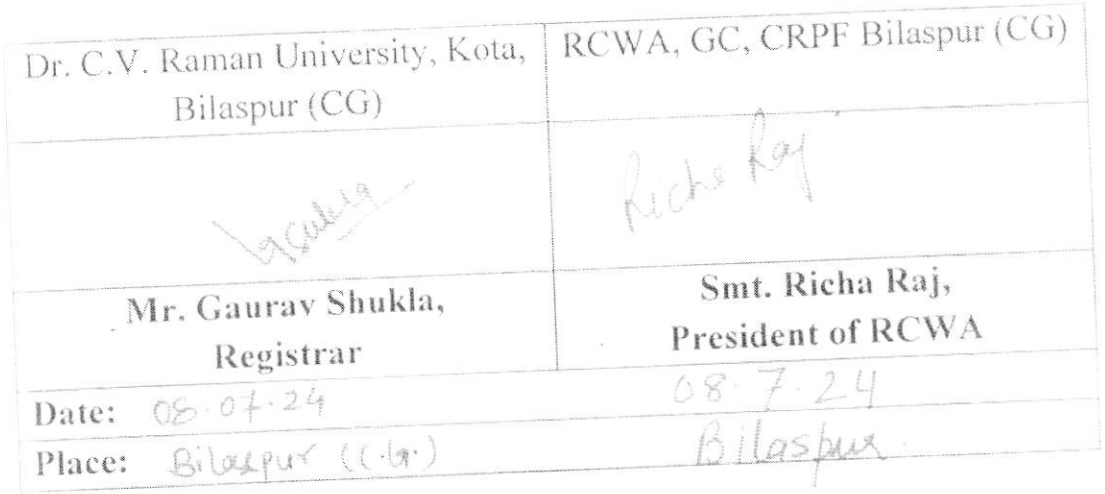 Dr. C.V. Raman University, Kota,
Bilaspur (CG)
RCWA, GC, CRPF Bilaspur (CG)
Richa Raj
Mr. Gaurav Shukla,
Registrar
Smt. Richa Raj,
President of RCWA
Date: 08.07.24
08.7.24
Place: Bilaspur (C.G.)
Bilaspur.